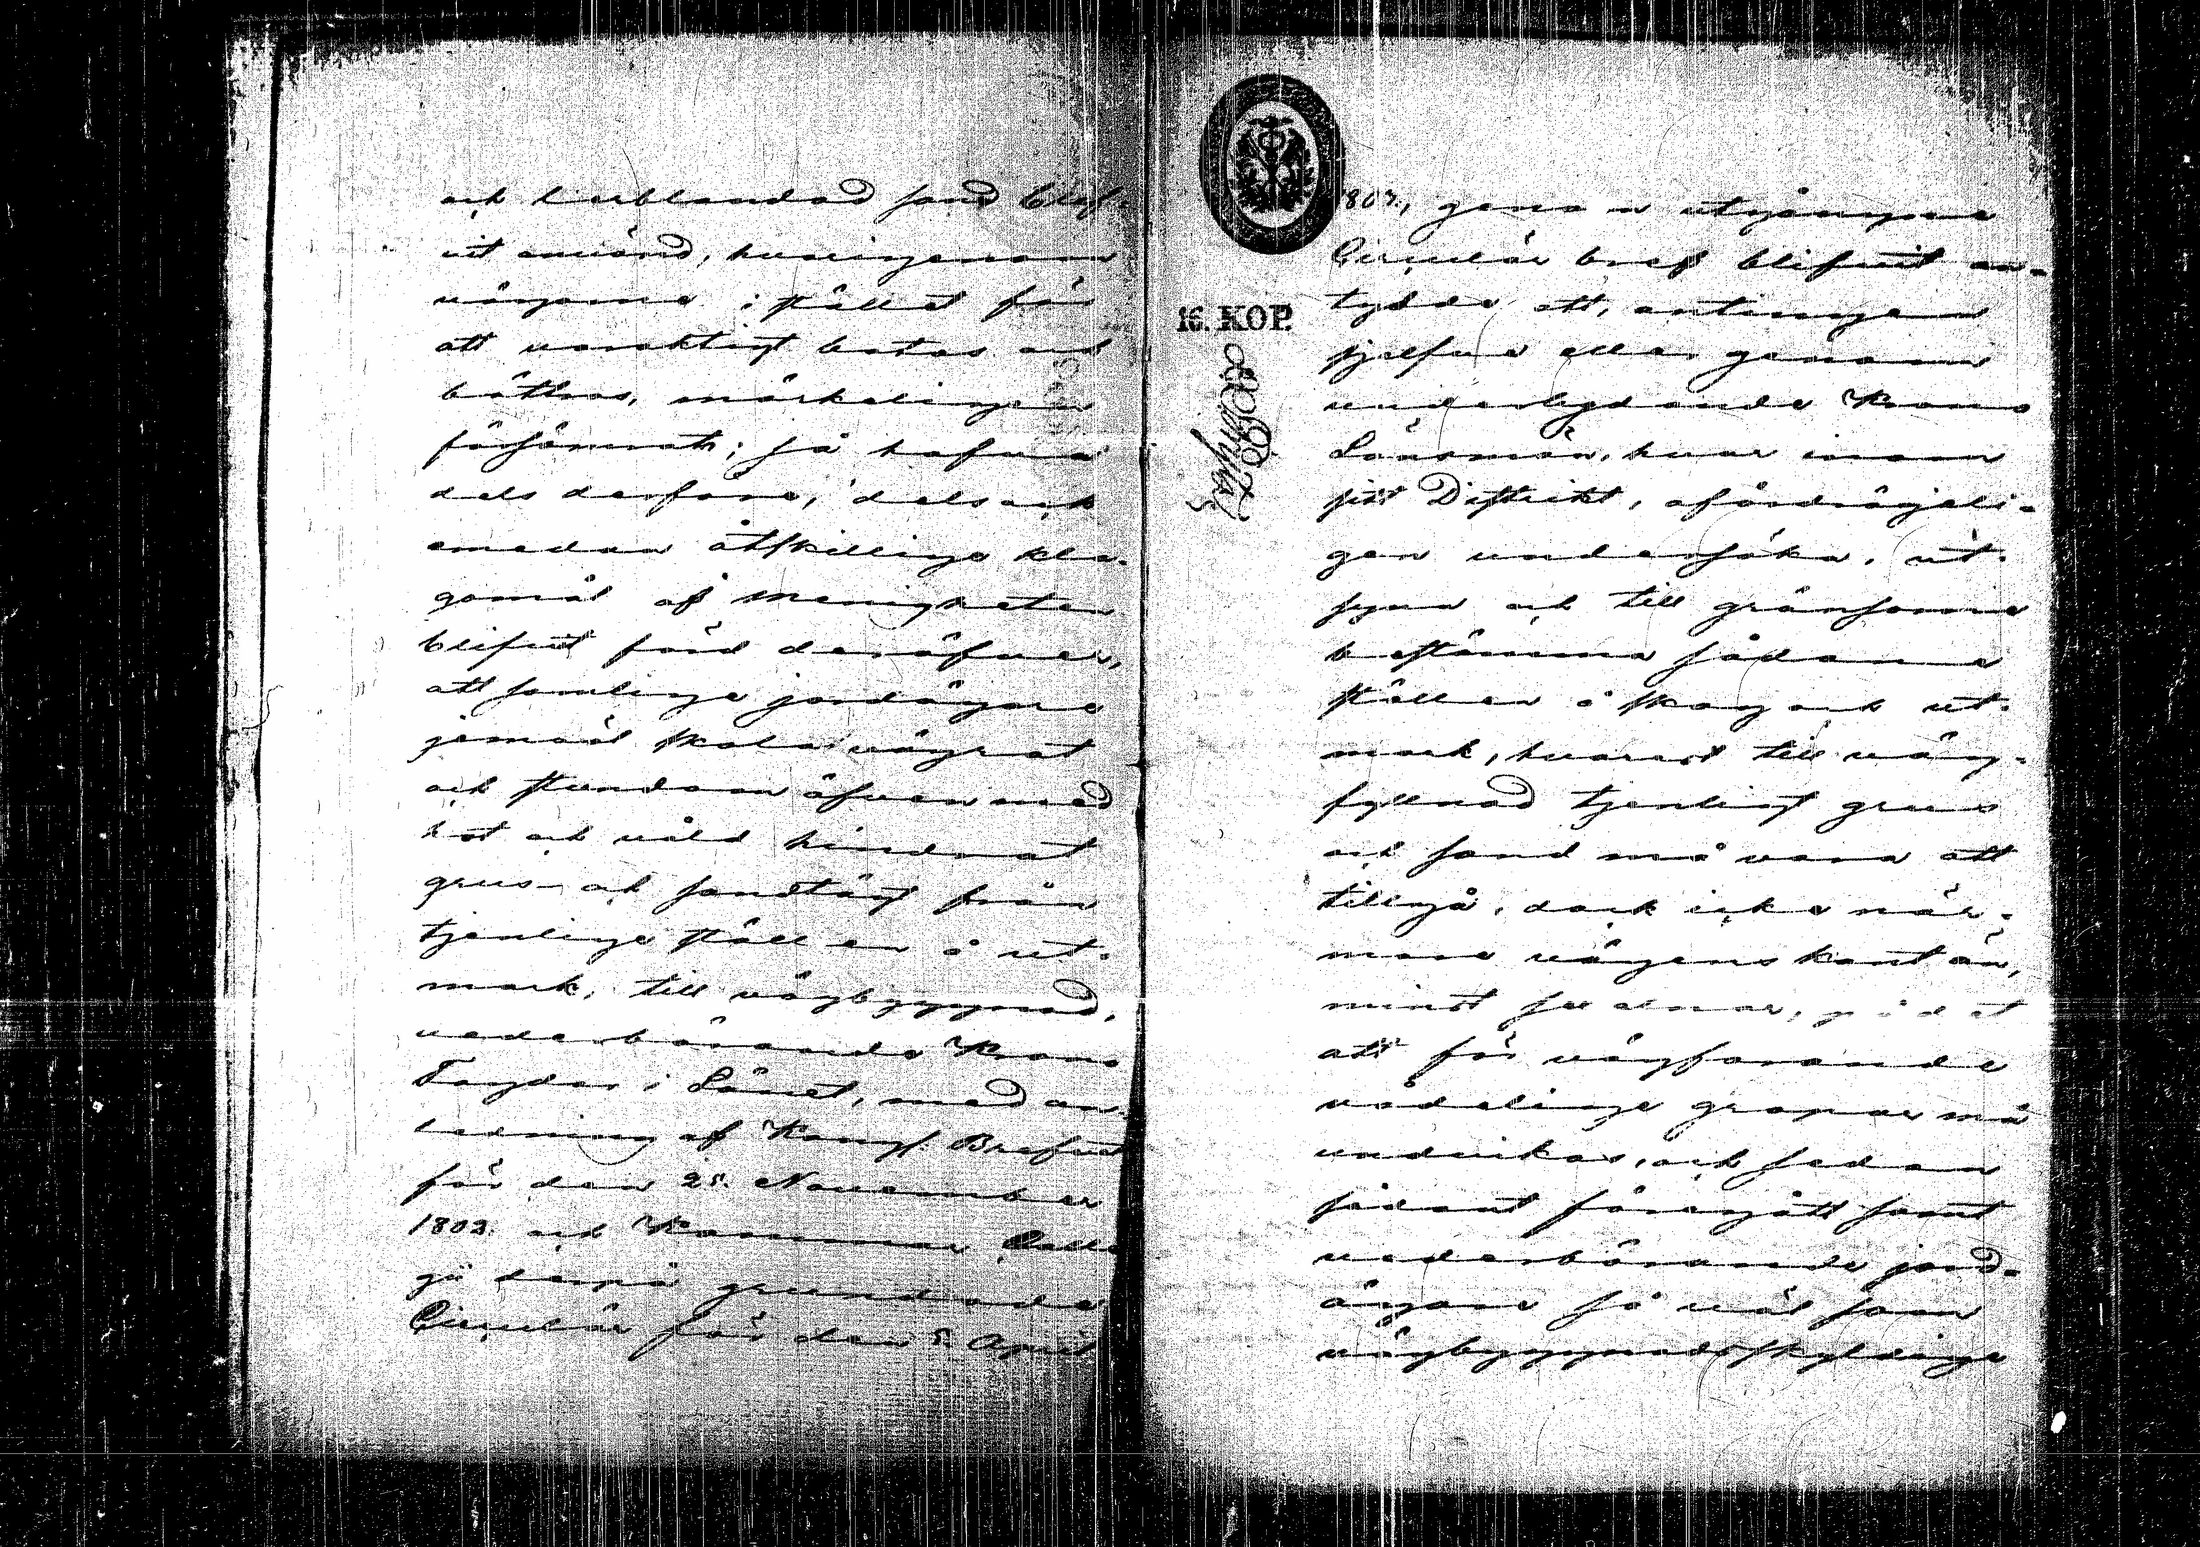 och lerblandad sand blif-
vit använd, hvarigenom
vägarne i stället för
att varaktigt botas och
bättras, märkeligen
försämrats; så hafva
dels derföre, dels och
emedan åtskillige kla-
gomål af menigheten
blifvit förd deröfver,
att somlige jordägare
jemväl skola vägrat
och stundom äfven med
hot och våld hindrat
grus- och sandtägt från
tjenlige ställen å ut-
mark, till vägbyggnad,
vederbörande Krono
Fogdar i Länet, med an-
ledning af Kongl. Brefvet
för den 25. November
1802. och Kammar Colle
gii derpå grundade
Circulär för den 5. April
1807, genom utgångne
Circulär bref blifvit an-
tydde att, antingen
sjelfve eller genom
underlydande Krono
Länsmän, hvar inom
sitt Distrikt, ofördröjeli-
gen undersöka, ut-
syna och till gränsorna
bestämma sådane
ställen å skog och ut-
mark, hvarest till väg-
fyllnad tjenligt grus
och sand må vara att
tillgå, dock icke när-
mare vägens kant än,
minst sex alnar, på det
att för vägfarande
vådelige gropar må
undvikas, och sedan
sådant föregått samt
vederbörande jord-
ägare så väl som
vägbyggnadsskyldige
16. KOP.